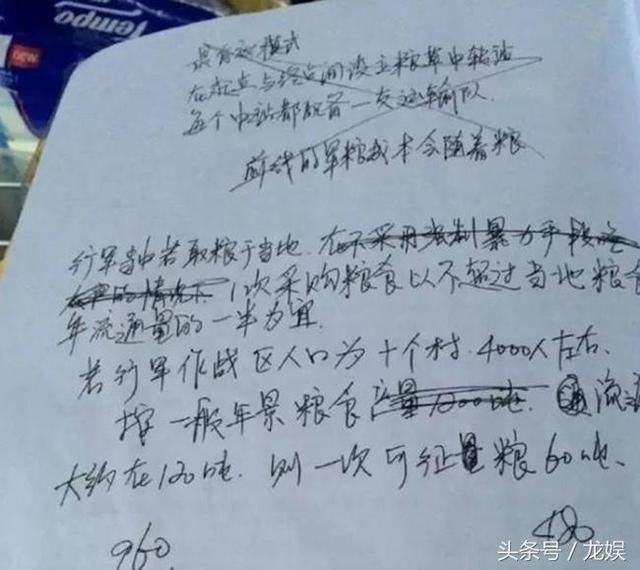 Tempo
最有效模式
在起点与终点间设立粮草中转站
每个中站都配备一支运输队.
前线的军粮成本会随着粮
行军当中若取粮于当地. 在不采用强制暴力手段
的情况下 1次采购粮食以不超过当地粮食
年流通量的一半为宜.
若行军作战区人口为十个村. 4000人左右.
按一般年景粮食产量1000吨. 流通
大约在120吨. 则一次可征量粮60吨.
960
480
头条号 / 龙娱